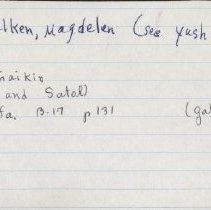 lken, Magdelen (see yush
haikin
and Satal)
fa. B-17 p 131 (gal